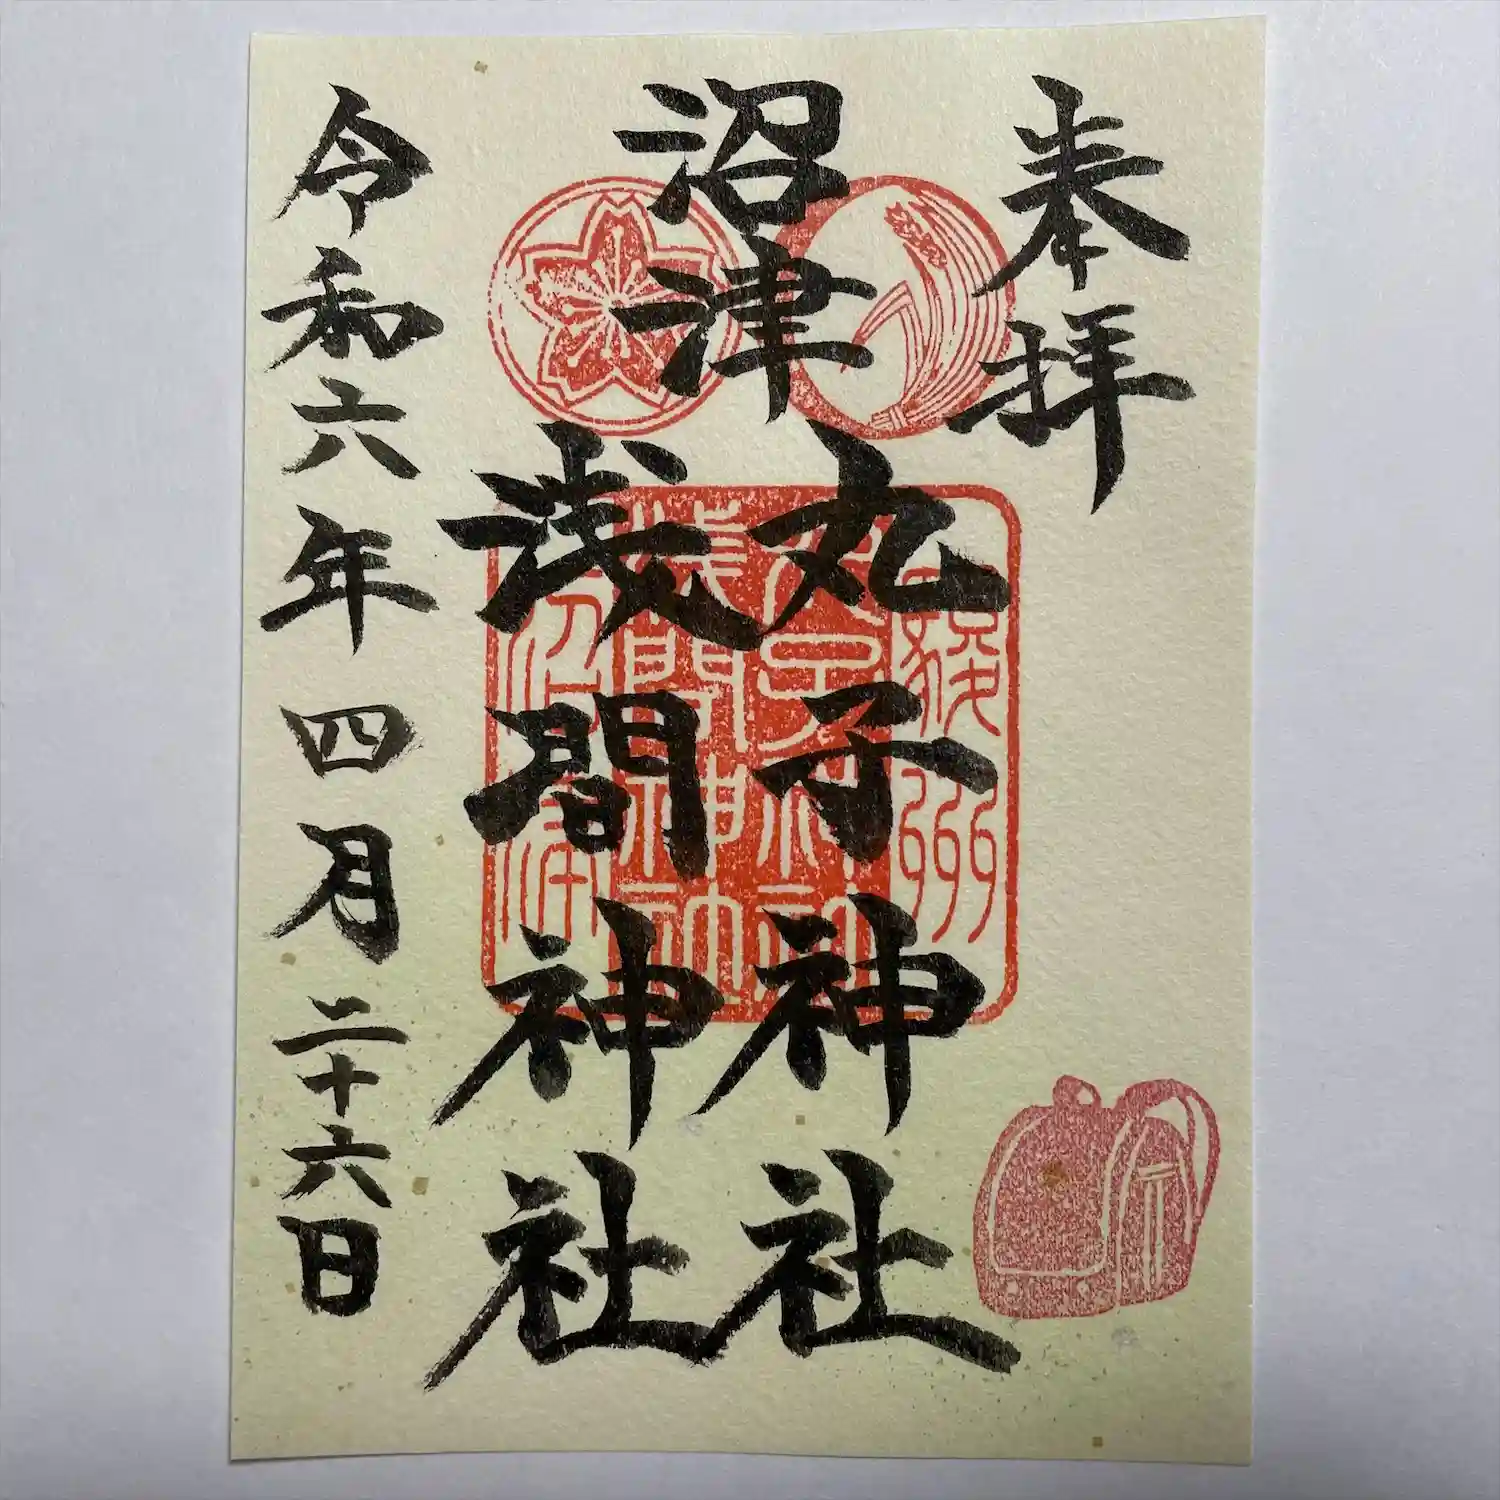 奉拝
沼津
丸子神社
浅間神社
令和六年四月二十六日
駿州
丸子神社
浅間神社
沼津